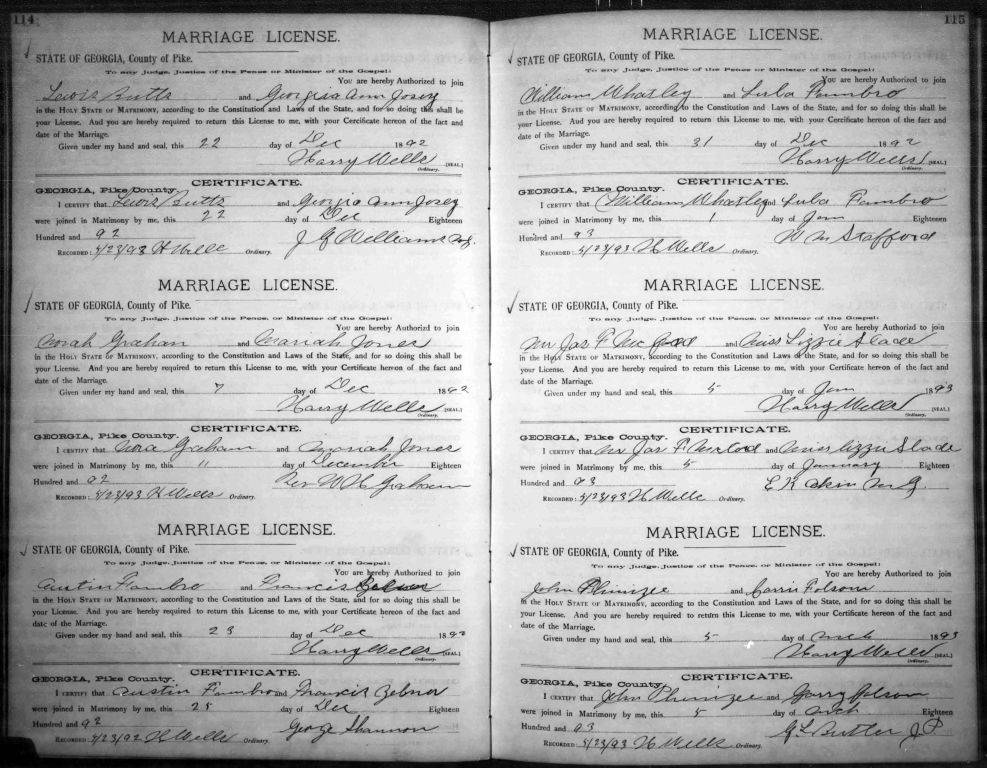 114
MARRIAGE LICENSE.
STATE OF GEORGIA, County of Pike.
To any Judge, Justice of the Peace or Minister of the Gospel:
You are hereby Authorized to join
Lewis Butts and Georgia Ann Josey
in the HOLY STATE OF MATRIMONY, according to the Constitution and Laws of the State, and for so doing this shall be
your License. And you are hereby required to return this License to me, with your Certificate hereon of the fact and
date of the Marriage.
Given under my hand and seal, this 22 day of Dec 1892
Harry Wells [SEAL.]
Ordinary.
CERTIFICATE.
GEORGIA, Pike County.
I CERTIFY that Lewis Butts and Georgia Ann Josey
were joined in Matrimony by me, this 22 day of Dec Eighteen
Hundred and 92 J G Williams
RECORDED: 5/23/93 H Wells Ordinary.
MARRIAGE LICENSE.
STATE OF GEORGIA, County of Pike.
To any Judge, Justice of the Peace, or Minister of the Gospel:
You are hereby Authorized to join
Norah Graham and Mariah Jones
in the HOLY STATE OF MATRIMONY, according to the Constitution and Laws of the State, and for so doing this shall be
your License. And you are hereby required to return this License to me, with your Certificate hereon of the fact and
date of the Marriage.
Given under my hand and seal, this 7 day of Dec 1892
Harry Wells [SEAL.]
Ordinary.
CERTIFICATE.
GEORGIA, Pike County
I CERTIFY that Nora Graham and Mariah Jones
were joined in Matrimony by me, this 11 day of December Eighteen
Hundred and 92 Rev W H Graham
RECORDED: 5/23/93 H Wells Ordinary.
MARRIAGE LICENSE.
STATE OF GEORGIA, County of Pike.
To any Judge, Justice of the Peace, or Minister of the Gospel:
You are hereby Authorized to join
Austin Fambro and Francis
in the HOLY STATE OF MATRIMONY, according to the Constitution and Laws of the State, and for so doing this shall be
your License. And you are hereby required to return this License to me, with your Certificate hereon of the fact and
date of the Marriage.
Given under my hand and seal, this 23 day of Dec 1892
Harry Wells [SEAL.]
Ordinary.
CERTIFICATE.
GEORGIA, Pike County.
I CERTIFY that Austin Fambro and Francis
were joined in Matrimony by me, this 25 day of Dec Eighteen
Hundred and 92 George Shannon
RECORDED: 5/23/92 H Wells Ordinary.
115
MARRIAGE LICENSE.
STATE OF GEORGIA, County of Pike.
To any Judge, Justice of the Peace or Minister of the Gospel:
You are hereby Authorized to join
William Whatley and Lula Fambro
in the HOLY STATE OF MATRIMONY, according to the Constitution and Laws of the State, and for so doing this shall be
your License. And you are hereby required to return this License to me, with your Certificate hereon of the fact and
date of the Marriage.
Given under my hand and seal, this 31 day of Dec 1892
Harry Wells [SEAL.]
Ordinary.
CERTIFICATE.
GEORGIA, Pike County.
I CERTIFY that William Whatley and Lula Fambro
were joined in Matrimony by me, this 1 day of Jan Eighteen
Hundred and 93 W M Stafford
RECORDED: 5/23/93 H Wells Ordinary.
MARRIAGE LICENSE.
STATE OF GEORGIA, County of Pike.
To any Judge, Justice of the Peace, or Minister of the Gospel:
You are hereby Authorized to join
Mr Jas F and Miss Lizzie Slade
in the HOLY STATE OF MATRIMONY, according to the Constitution and Laws of the State, and for so doing this shall be
your License. And you are hereby required to return this License to me, with your Certificate hereon of the fact and
date of the Marriage.
Given under my hand and seal, this 5 day of Jan 1893
Harry Wells [SEAL.]
Ordinary.
CERTIFICATE.
GEORGIA, Pike County
I CERTIFY that Mr Jas F and Miss Lizzie Slade
were joined in Matrimony by me, this 5 day of January Eighteen
Hundred and 93 E K Akin M G.
RECORDED: 5/23/93 H Wells Ordinary.
MARRIAGE LICENSE.
STATE OF GEORGIA, County of Pike.
To any Judge, Justice of the Peace, or Minister of the Gospel:
You are hereby Authorized to join
John Phinizee and Carrie Folsom
in the HOLY STATE OF MATRIMONY, according to the Constitution and Laws of the State, and for so doing this shall be
your License. And you are hereby required to return this License to me, with your Certificate hereon of the fact and
date of the Marriage.
Given under my hand and seal, this 5 day of Mch 1893
Harry Wells [SEAL.]
Ordinary.
CERTIFICATE.
GEORGIA, Pike County.
I CERTIFY that John Phinizee and
were joined in Matrimony by me, this 5 day of Mch Eighteen
Hundred and 93 G L Butler J P
RECORDED: 5/23/93 H Wells Ordinary.